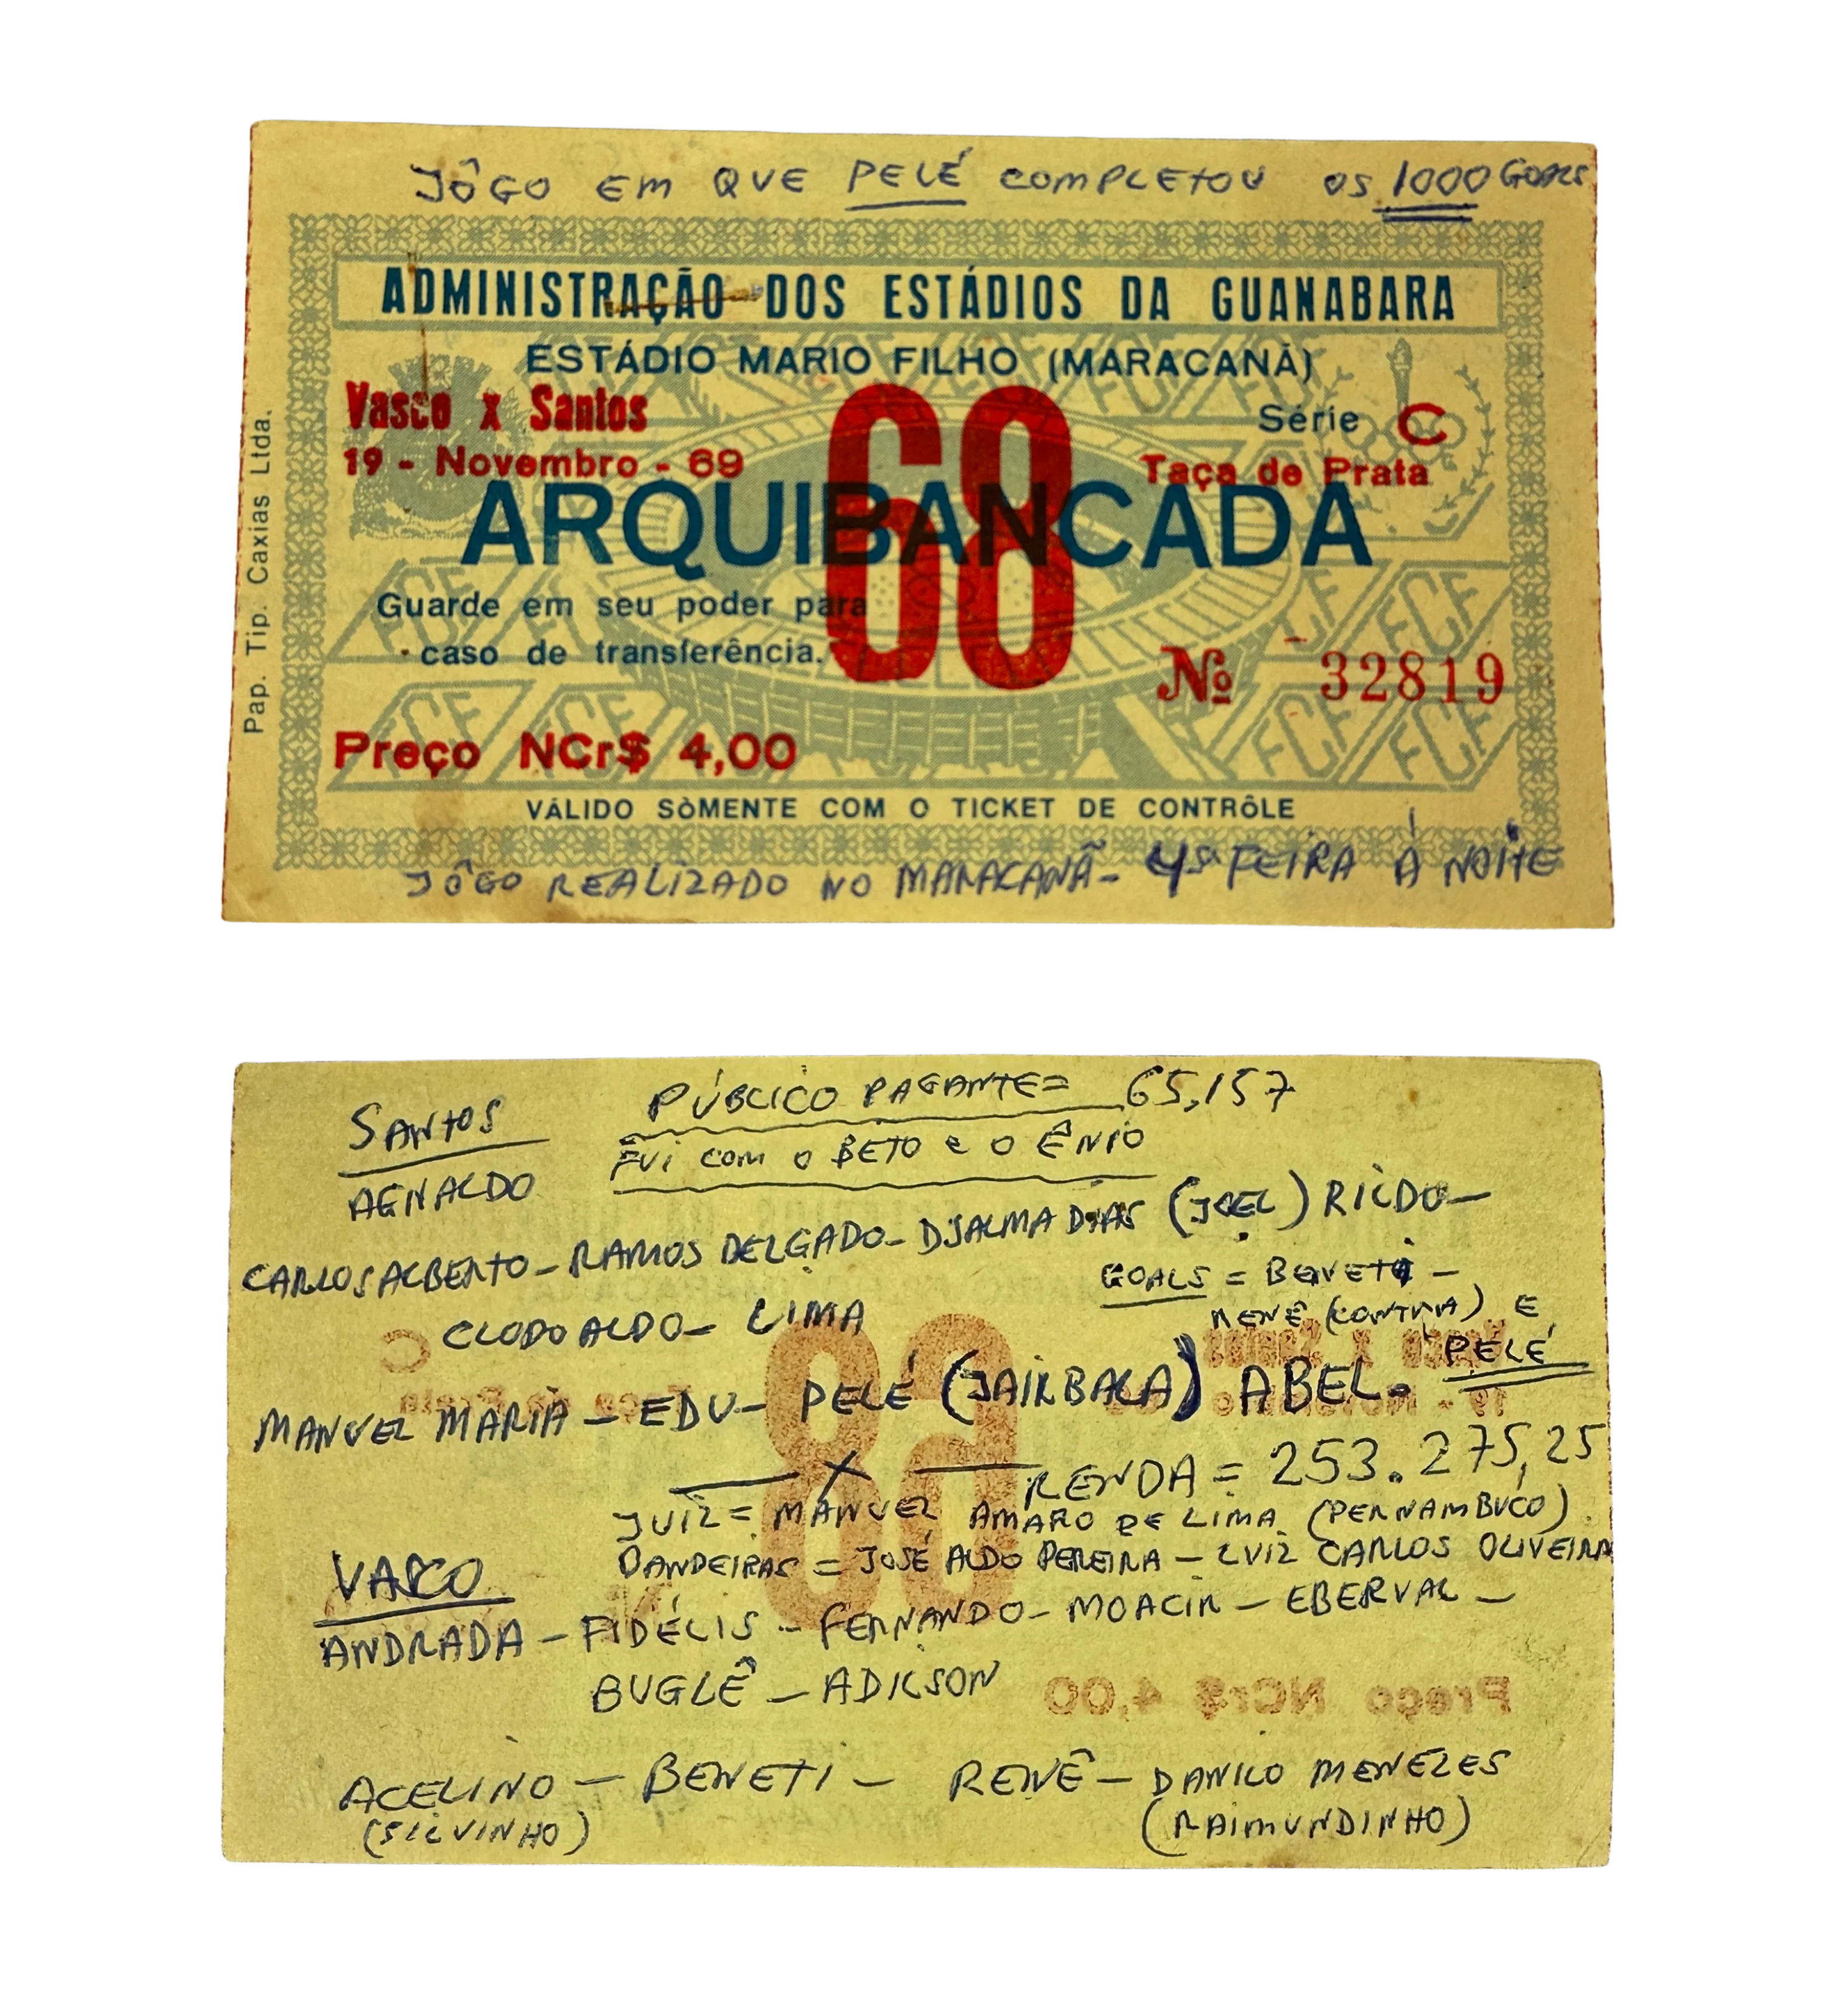 JÔGO EM QUE PELÉ COMPLETOU OS 1000 GOALS
ADMINISTRAÇÃO DOS ESTÁDIOS DA GUANABARA
ESTÁDIO MARIO FILHO (MARACANÃ)
Vasco x Santos
68
Série C
19 - Novembro - 69
Taça de Prata
ARQUIBANCADA
Guarde em seu poder para
caso de transferência.
Nº 32819
Preço NCr$ 4,00
VÁLIDO SÒMENTE COM O TICKET DE CONTRÔLE
Pap. Tip. Caxias Ltda.
JÔGO REALIZADO NO MARACANÃ - 4ª FEIRA À NOITE
PÚBLICO PAGANTE = 65,157
SANTOS
FUI COM O BETO E O ÊNIO
AGNALDO
CARLOS ALBERTO - RAMOS DELGADO - DJALMA DIAS (JOEL) RILDO -
GOALS = BENETI -
RENÊ (CONTRA) E
PELÉ
CLODOALDO - LIMA
MANUEL MARIA - EDU - PELÉ (JAIR BALA) ABEL -
RENDA = 253.275,25
JUIZ = MANUEL AMARO DE LIMA (PERNAMBUCO)
BANDEIRAS = JOSÉ ALDO PEREIRA - LUIZ CARLOS OLIVEIRA
VASCO
ANDRADA - FIDÉLIS - FERNANDO - MOACIR - EBERVAL -
BUGLÊ - ADILSON
ACELINO - BENETI - RENÊ - DANILO MENEZES
(SILVINHO) (RAIMUNDINHO)